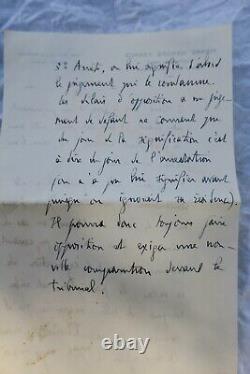 3° Arrêté, on lui signifie d'abord
le jugement qui le condamne
les délais d'opposition à un juge-
ment de défaut ne courent que
du jour de la signification c'est
à dire du jour de l'arrestation
(on n'a pu lui signifier avant
puisqu'on ignorait sa résidence).
Il pourra donc toujours faire
opposition et exiger une nou-
velle comparution devant le
tribunal.
© thebo